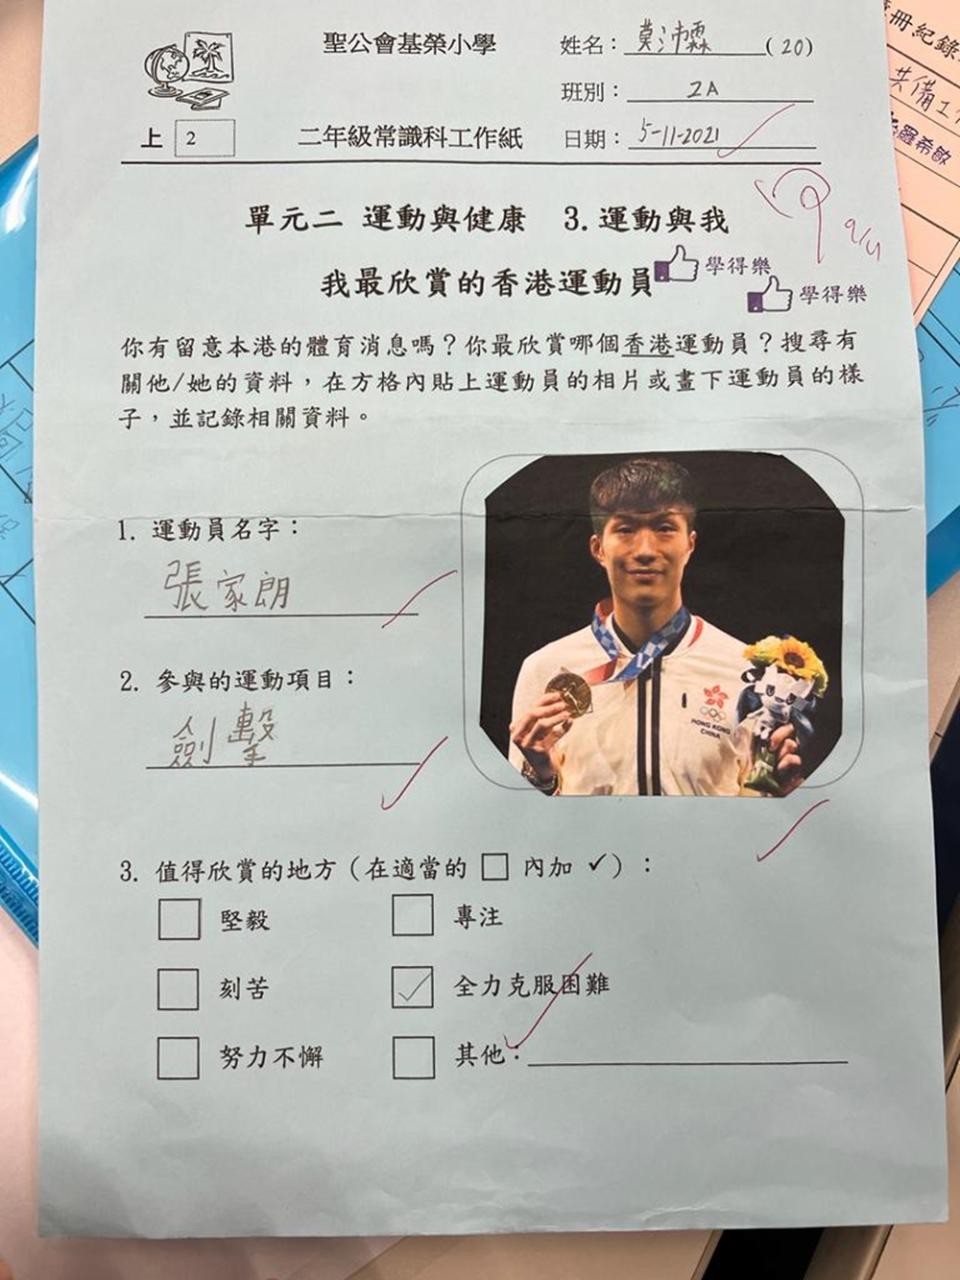 聖公會基榮小學
姓名：莫沛霖(20)
班別：2A
上 2 二年級常識科工作紙 日期：5-11-2021
單元二 運動與健康 3.運動與我
我最欣賞的香港運動員
學得樂
學得樂
你有留意本港的體育消息嗎？你最欣賞哪個香港運動員？搜尋有
關他/她的資料，在方格內貼上運動員的相片或畫下運動員的樣
子，並記錄相關資料。
1. 運動員名字：
張家朗
2. 參與的運動項目：
劍擊
HONG KONG
CHINA
3. 值得欣賞的地方（在適當的 □ 內加 ✓）：
堅毅 專注
刻苦 ✓ 全力克服困難
努力不懈 其他：
冊紀錄
共備工
羅希敏